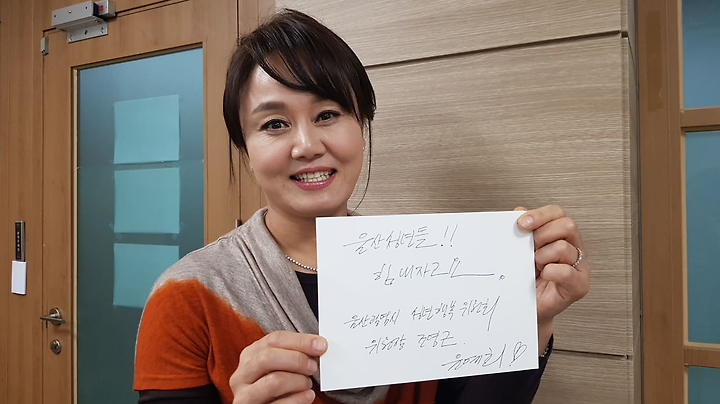 울산 청년들!!
힘내자구요.
울산광역시 청년행복 위원회
위원장 조영근.
윤예희!